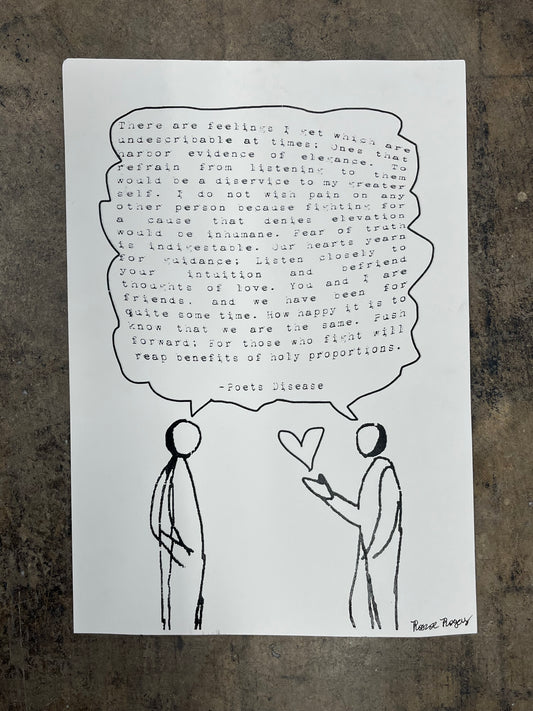 There are feelings I get which are
undescribable at times; Ones that
harbor evidence of elegance. To
refrain from listening to them
would be a diservice to my greater
self. I do not wish pain on any
other person because fighting for
a cause that denies elevation
would be inhumane. Fear of truth
is indigestable. Our hearts yearn
for guidance; Listen closely to
your intuition and befriend
thoughts of love. You and I are
friends. and we have been for
quite some time. How happy it is to
know that we are the same. Push
forward; For those who fight will
reap benefits of holy proportions.
-Poets Disease
Rogers